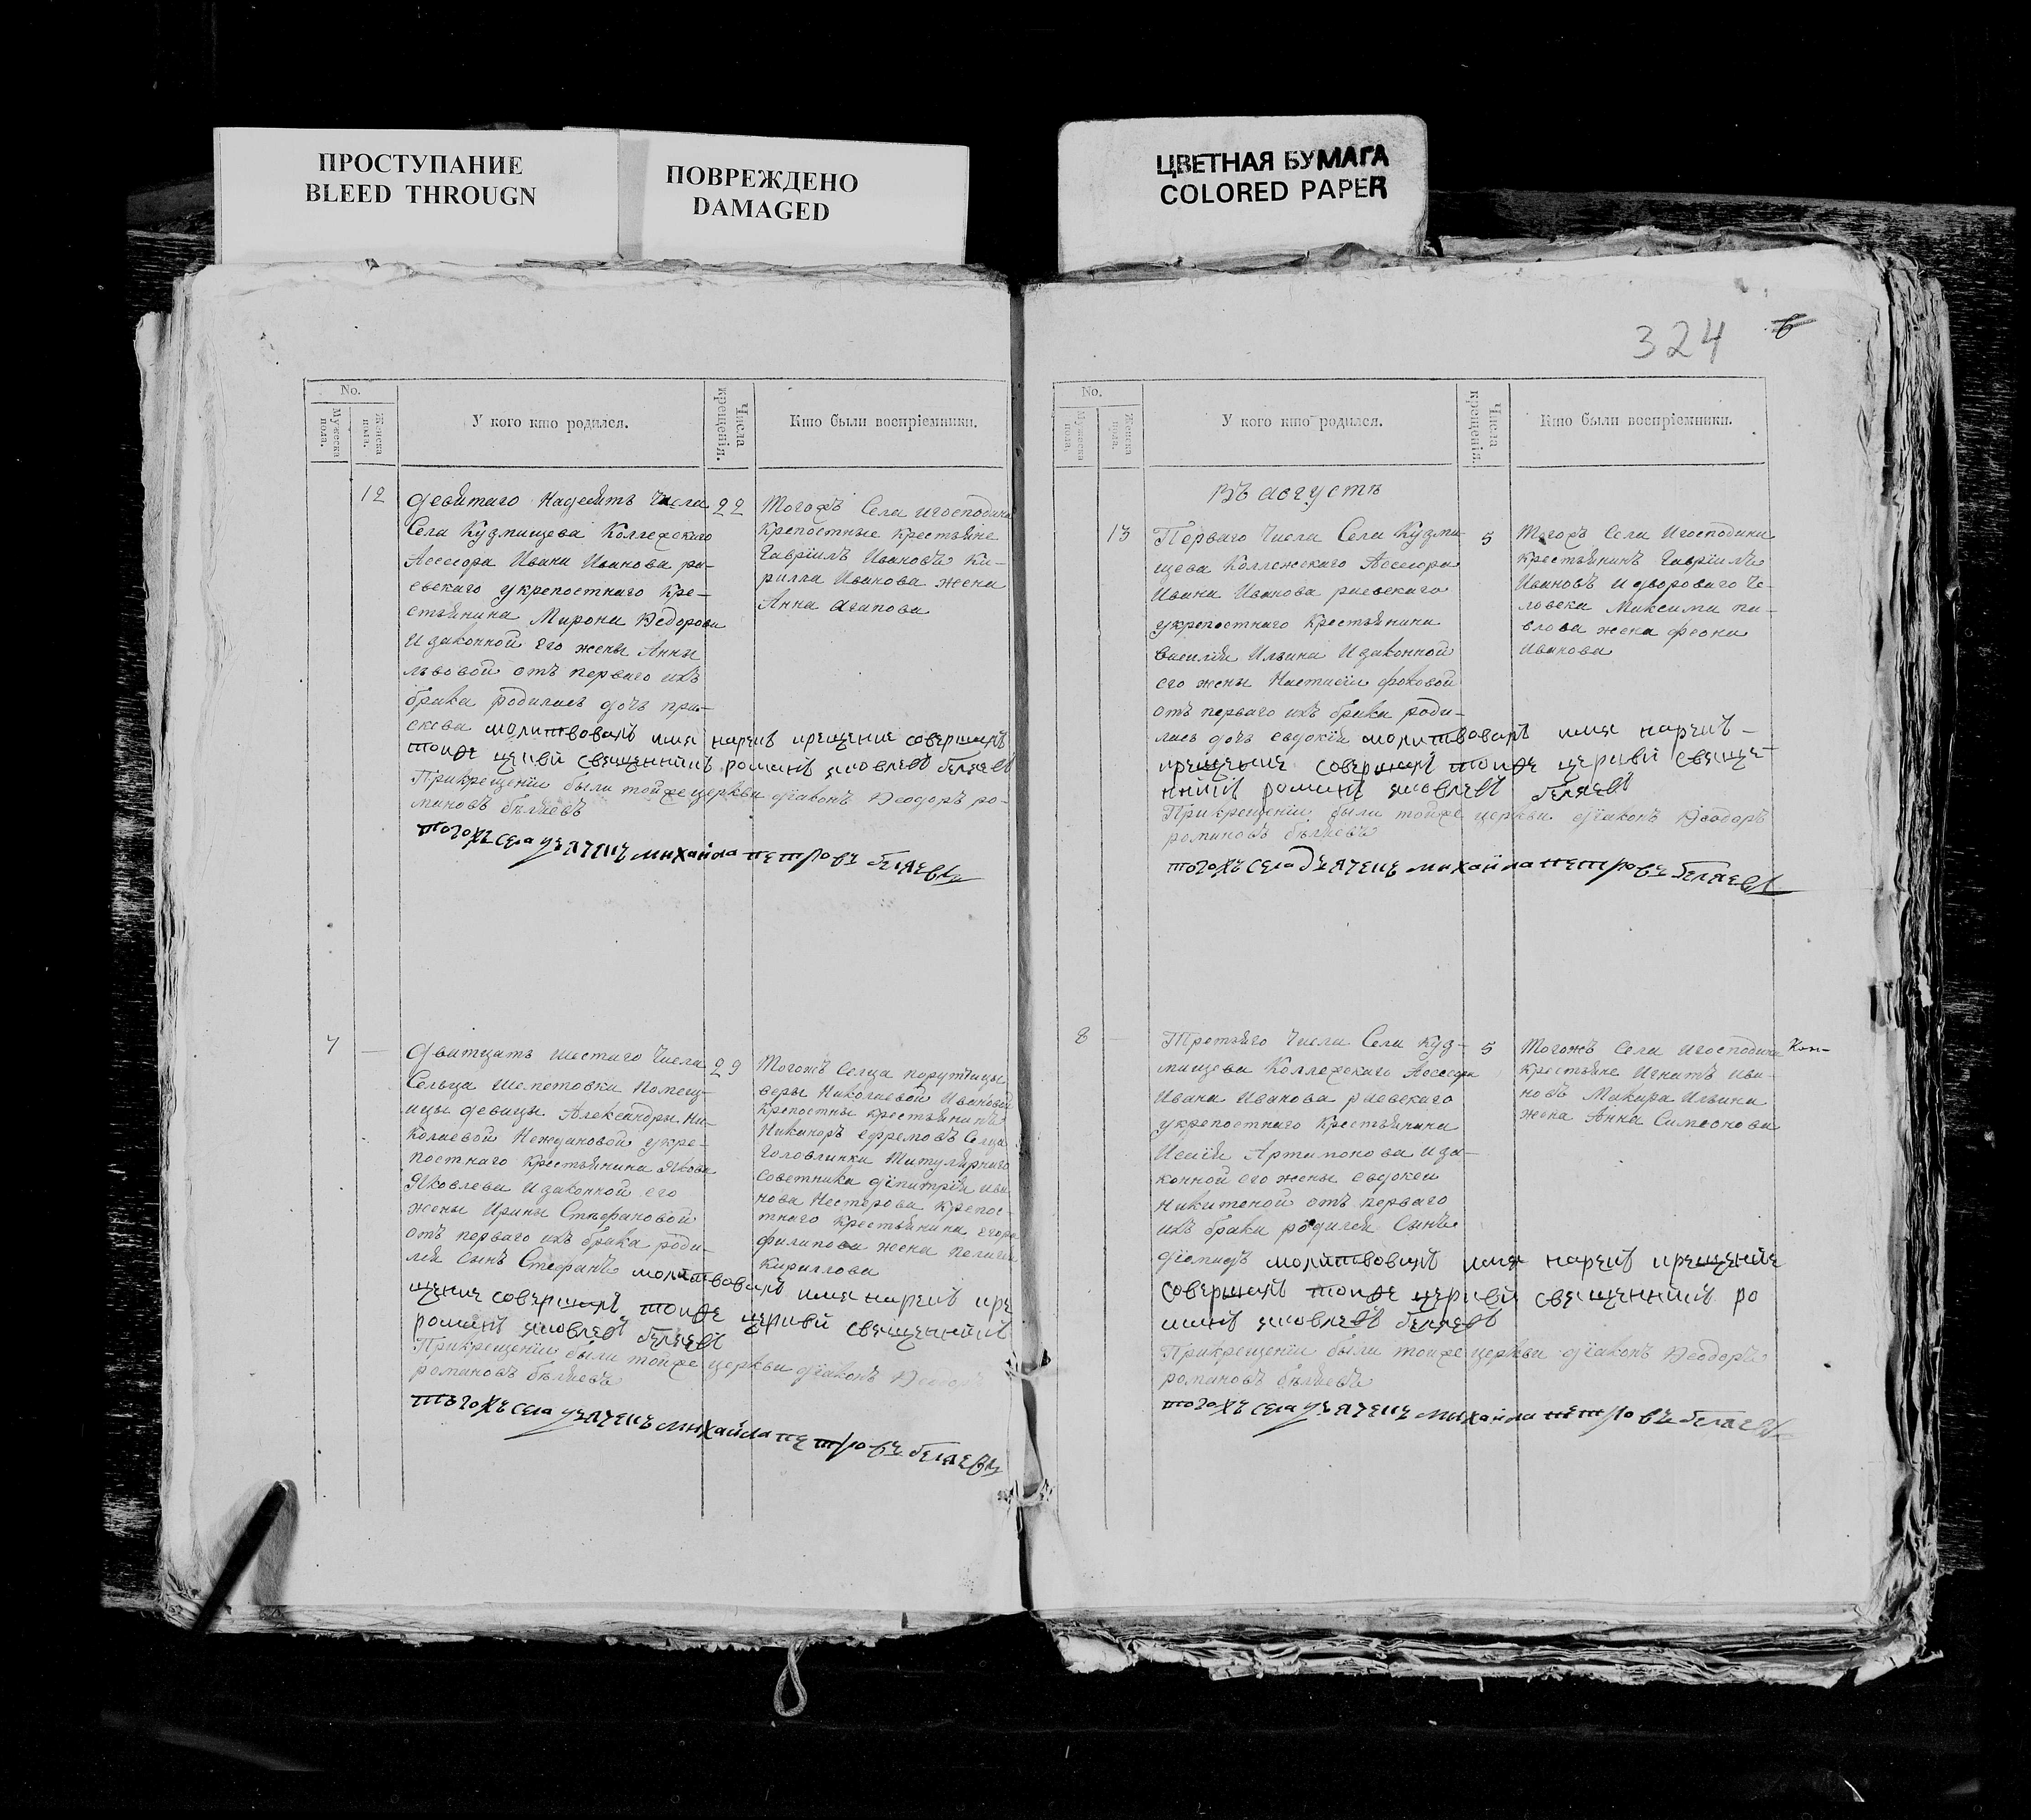 ПРОСТУПАНИЕ
BLEED THROUGN
ПОВРЕЖДЕНО
DAMAGED
ЦВЕТНАЯ БУМАГА
COLORED PAPER
324
No.
Мужеска пола.
Женска пола.
У кого кто родился.
Числа крещенія.
Кто были воспріемники.
12
девятаго Надесять Числа
Села Кузмищева Коллежскаго
Асессора Ивана Иванова ра-
евскаго укрепостнаго Кре-
стьянина Мирона Ѳедорова
И законной его жены Анны
львовой отъ перваго ихъ
брака родилась дочь пра-
скева молитвовалъ имя нарекъ крещение совершалъ
тойже церкви священникъ романъ яковлевъ беляевъ
При крещеніи были тойже церкви діаконъ Ѳеодоръ ро-
мановъ бѣляевъ
тогожъ села дьячекъ михайла петровъ беляевъ
22
Тогожъ Села игосподина
крепостные крестьяне
Гавріилъ Ивановъ Ки-
рилла Иванова жена
Анна агапова
7
Дватцать шестаго Числа
Сельца Шепетовки Помещ-
ицы девицы Александры Ни-
колаевой Неждановой укре-
постнаго крестьянина Якова
Яковлева И законной его
жены Ирины Стефановой
отъ перваго ихъ брака роди-
лся Сынъ Стефанъ молитвовалъ имя нарекъ кре
щение совершалъ тойже церкви священникъ
романъ яковлевъ беляевъ
При крещеніи были тойже церкви діаконъ
романовъ бѣляевъ
тогожъ села дьячекъ михайла петровъ беляевъ
29
Тогожъ Селца порутчицы
веры Николаевой Ивановой
крепостны крестьянинъ
Никаноръ ефремовъ Селца
Головлинки Титулярнаго
Советника дімитрія ива
нова Нестерова крепос-
тнаго крестьянина егора
филипова жена пелагея
Кириллова
No.
Мужеска пола.
Женска пола.
У кого кто родился.
Числа крещенія.
Кто были воспріемники.
Въ августѣ
13
Перваго Числа Села Кузми-
щева Коллежскаго Асессора
Ивана Иванова раевскаго
укрепостнаго крестьянина
василия Ильина И законной
его жены Настасіи фоковой
отъ перваго ихъ брака роди-
лась дочь евдокія молитвовалъ имя нарекъ -
крещение совершалъ тойже церкви свяще-
нникъ романъ яковлевъ беляевъ
При крещеніи были тойже церкви діаконъ Ѳеодоръ
романовъ бѣляевъ
тогожъ села дьячекъ михайла петровъ беляевъ
5
Тогожъ Села Игосподина
крестьянинъ Гавріилъ
Ивановъ И двороваго че-
ловека Максима па-
влова жена феона
Иванова
8
Третьяго Числа Села Куз-
мищева Коллежскаго Асессора
Ивана Иванова раевскаго
укрепостнаго Крестьянина
Исаія Артамонова и за-
конной его жены евдокеи
Никитеной отъ перваго
ихъ брака родился Сынъ
діомидъ молитвовалъ имя нарекъ крещение
совершалъ тойже церкви священникъ ро
манъ яковлевъ беляевъ
При крещеніи были тойже церкви діаконъ Ѳеодоръ
романовъ бѣляевъ
тогожъ села дьячекъ михайла петровъ беляевъ
5
Тогожъ Села игосподина
крестьяне Игнатъ ива-
новъ Макара Ильина
жена Анна Симеонова